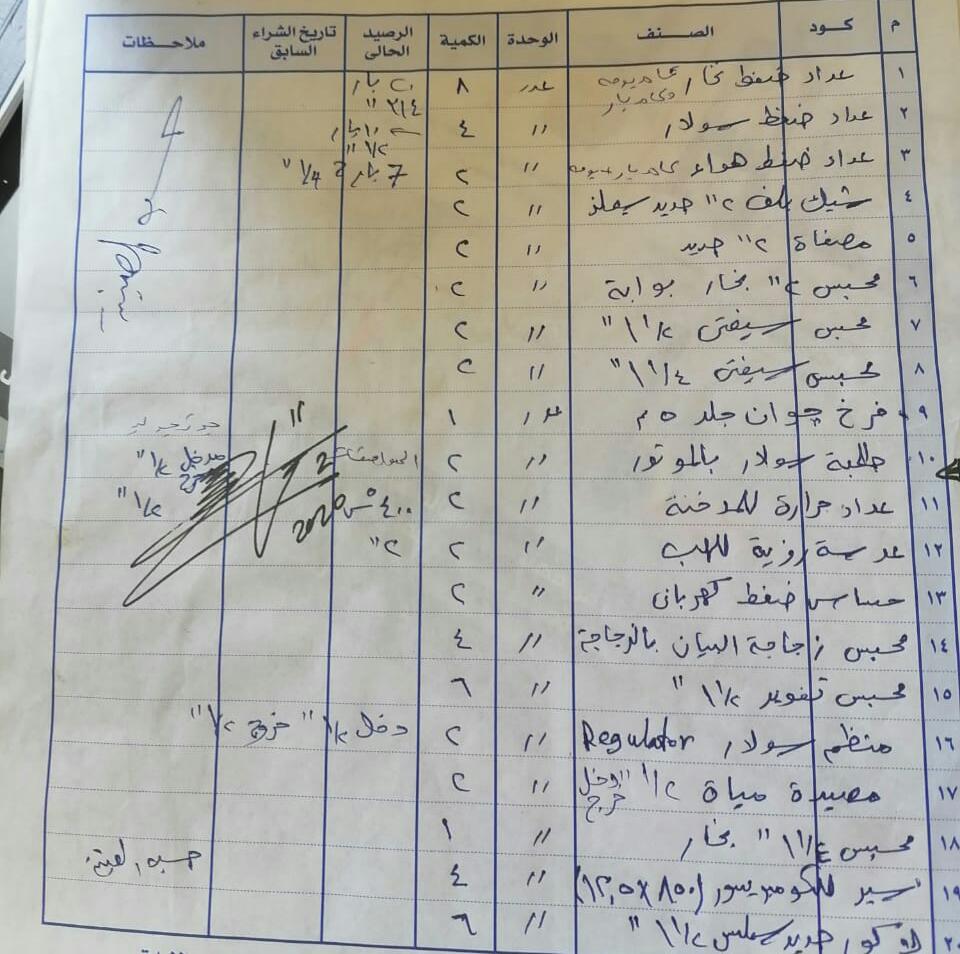 م كود الصنف الوحدة الكمية الرصيد الحالى تاريخ الشراء السابق ملاحظات
١ عداد ضغط بخار عدد ٨ بار
٣/٤ "
٢ عداد ضغط سولار " ٤ ١٠ بار
١/٢ "
٣ عداد ضغط هواء " ٢ 7 بار 1/4 "
٤ شيك بلف ٢" حديد " ٢
٥ مصفاة ٢" حديد " ٢
٦ محبس ٢" بخار بوابة " ٢
٧ محبس سيفتى ١ ١/٢ " " ٢
٨ محبس سيفتى ١ ١/٤ " " ٢
٩ فرخ جوان جلد ٥ م عدد ١
١٠ طلمبة سولار بالموتور " ٢ مدخل ١/٢ "
١١ عداد حرارة للمدخنة " ٢ ٤٠٠ س° ١/٢ "
١٢ عدسة رؤية للهب " ٢ ٢"
١٣ حساس ضغط كهربائى " ٢
١٤ محبس زجاجة البيان بالزجاجة " ٤
١٥ محبس تفوير ١ ١/٢ " " ٦
١٦ منظم سولار Regulator " ٢ دخل ١/٢ " خروج ١/٢ "
١٧ مصيدة مياة ١/٢ " دخل خرج " ٢
١٨ محبس ١ ١/٤ " بخار " ١
١٩ سير للكومبريسور (٨٠٠ × ١٢,٥) " ٤
٢٠ كور حديد ١ ١/٢ " " ٦
١٢
2
2020